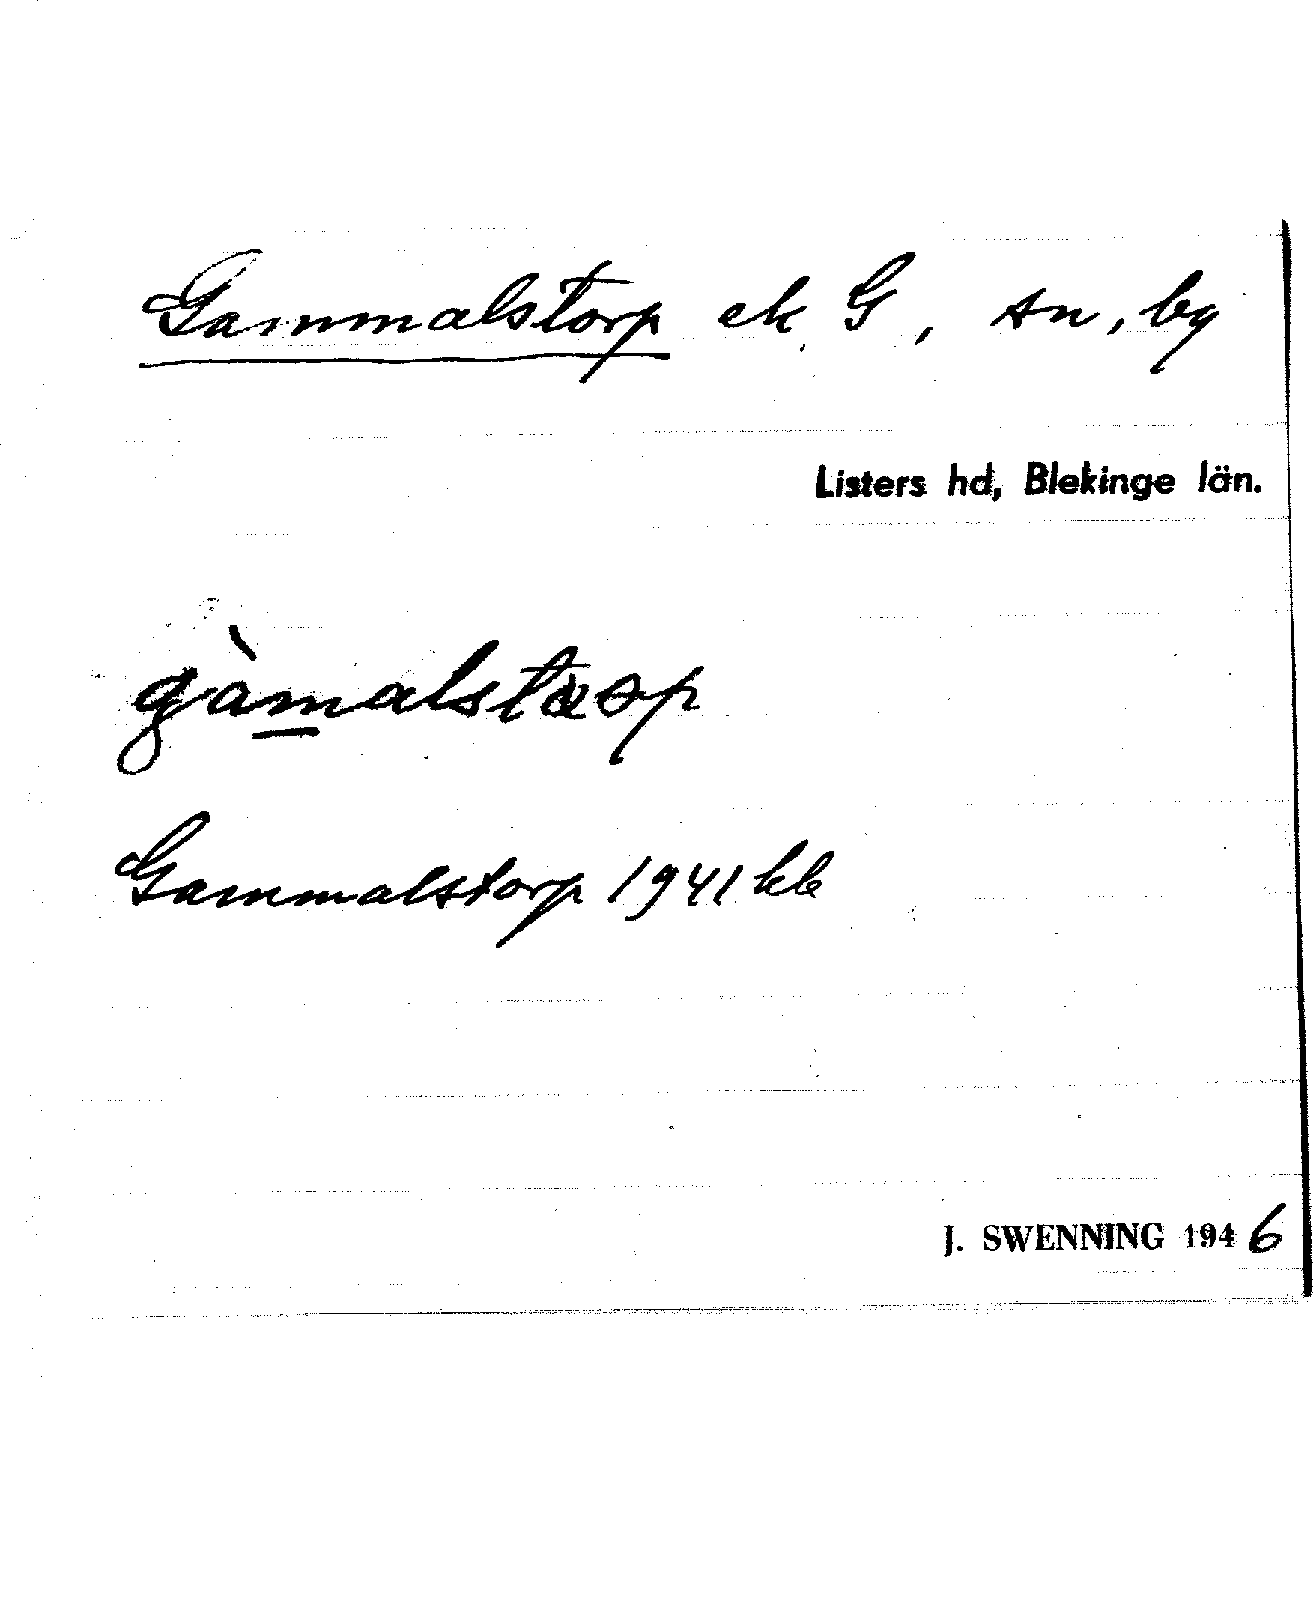 Gammalstorp ek G, sn, by
Listers hd, Blekinge län.
Gammalstorp 1941 kb
J. SWENNING 1946